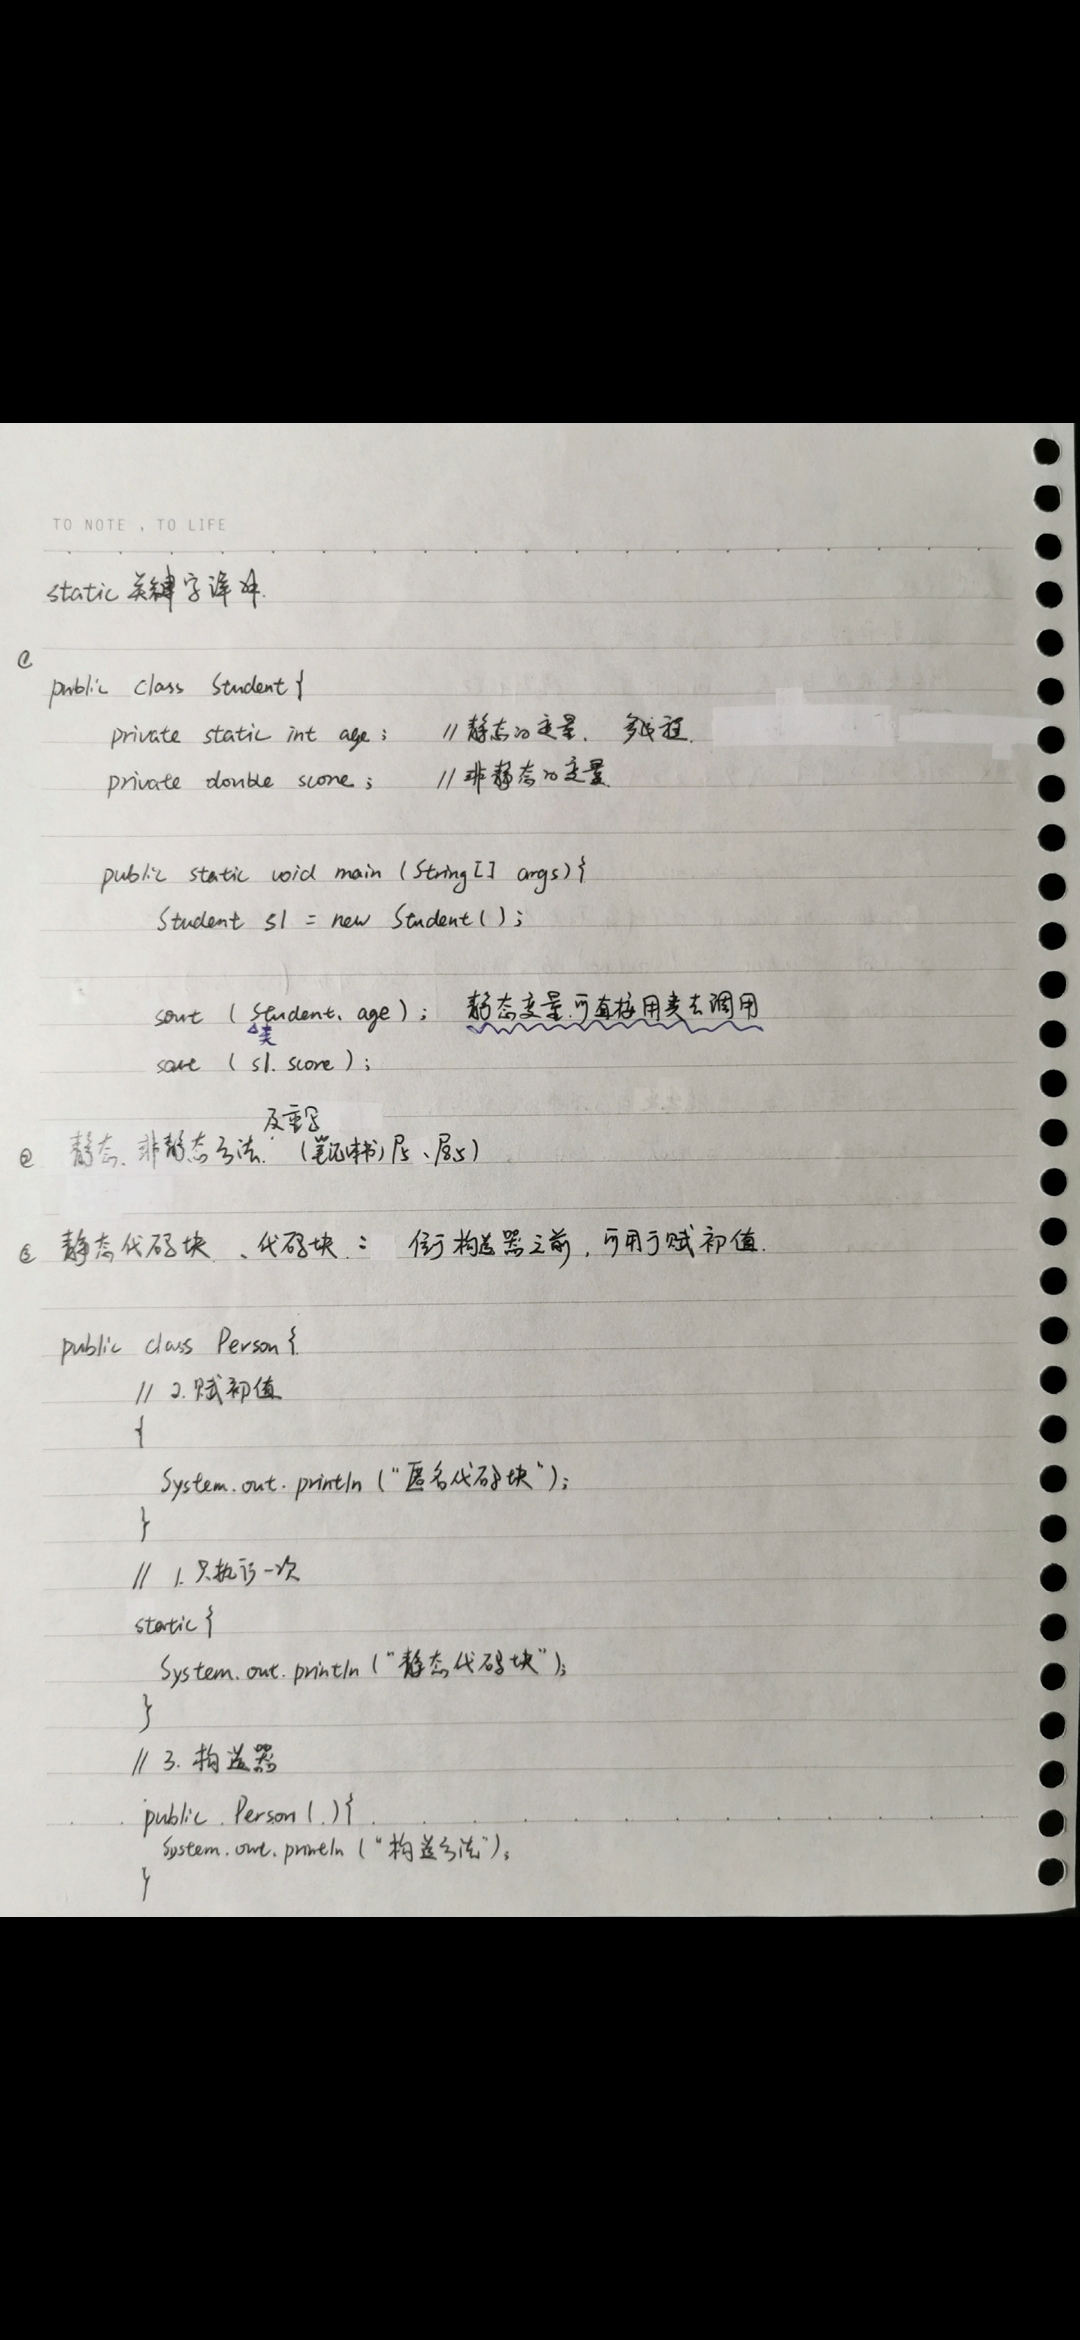 TO NOTE , TO LIFE
static 关键字详讲.
①
public class Student {
private static int age ; // 静态的变量. 多线程.
private double score ; // 非静态的变量
public static void main (String[] args) {
Student s1 = new Student() ;
sout ( Student. age ) ; 静态变量.可直接用类去调用
类
sout ( s1. score ) ;
及重写
② 静态、非静态方法. (笔记本书) P5、P85)
③ 静态代码块、代码块 : 位于构造器之前 , 可用于赋初值.
public class Person {
// 2. 赋初值
{
System.out.println ("匿名代码块") ;
}
// 1. 只执行一次
static {
System.out.println ("静态代码块") ;
}
// 3. 构造器
public Person ( ) {
System.out.println ("构造方法") ;
}